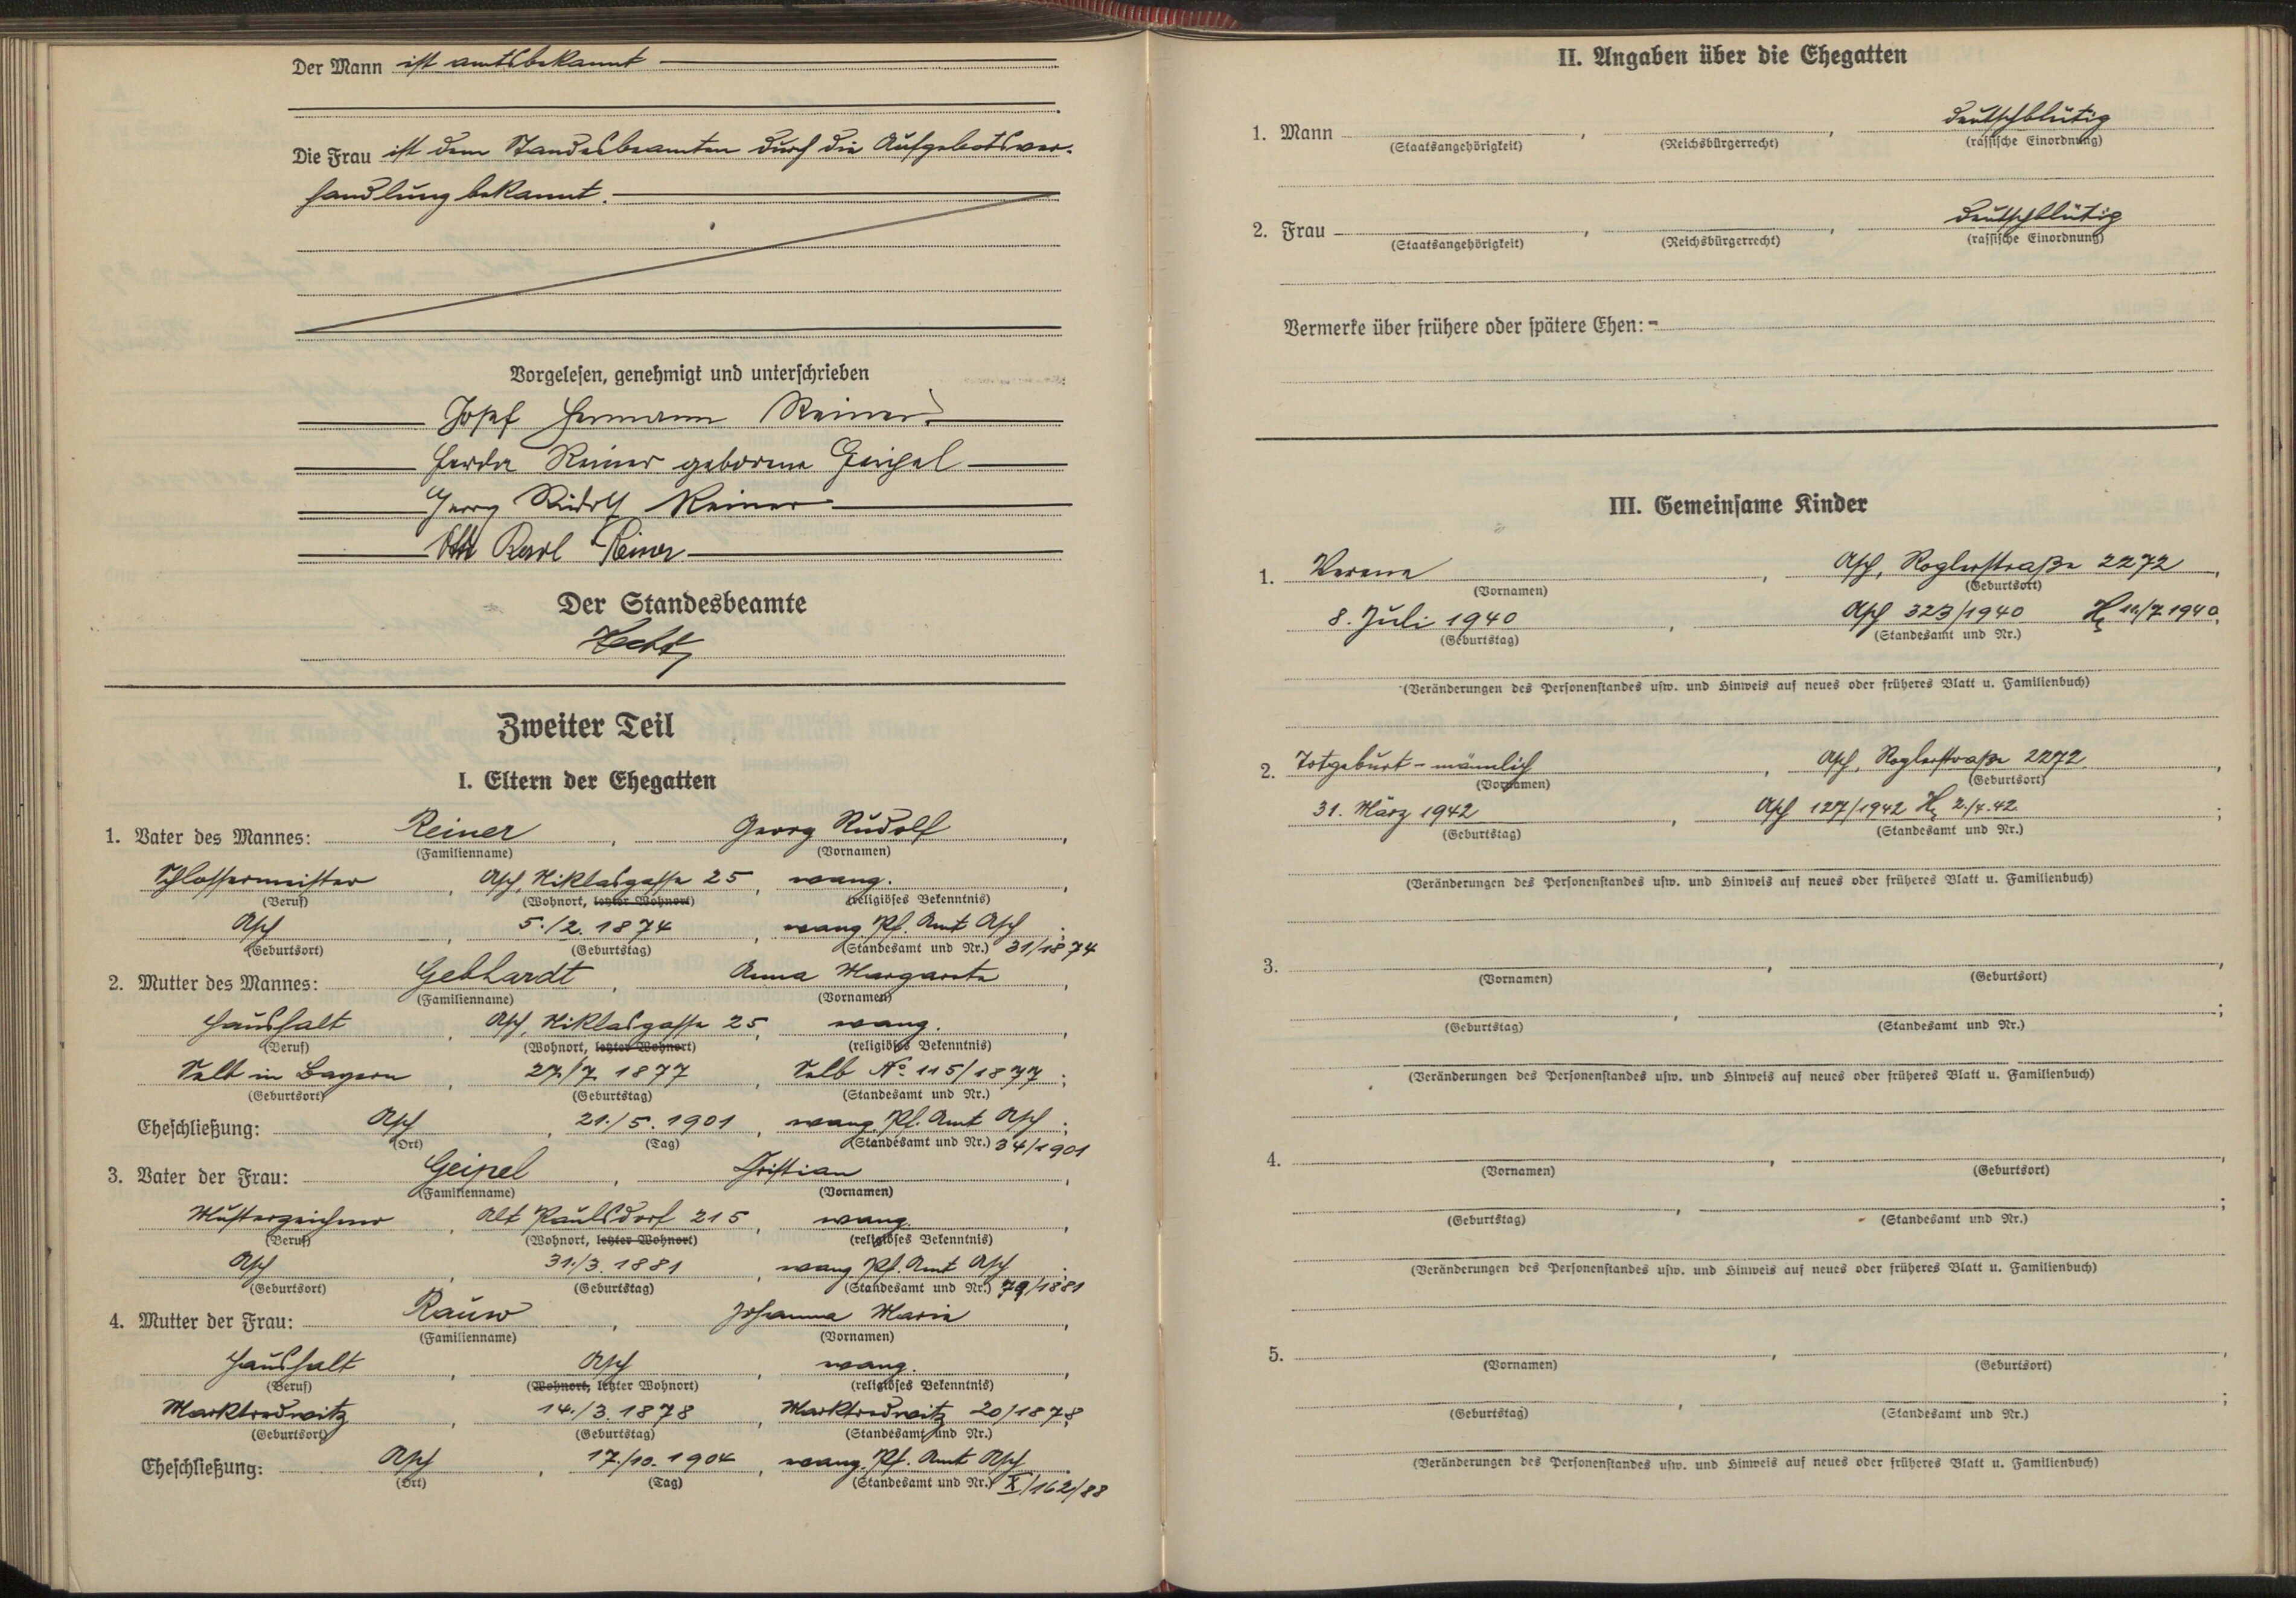 Der Mann ist amtsbekannt
Die Frau ist dem Standesbeamten durch die Aufgebotsver-
handlung bekannt.
Vorgelesen, genehmigt und unterschrieben
Josef Hermann Reiner
Gerda Reiner geborene Geipel
Georg Rudolf Reiner
Otto Karl Reiner
Der Standesbeamte
Zweiter Teil
I. Eltern der Ehegatten
1. Vater des Mannes: Reiner, Georg Rudolf,
(Familienname) (Vornamen)
Schlossermeister, Asch, Niklasgasse 25, evang.,
(Beruf) (Wohnort, letzter Wohnort) (religiöses Bekenntnis)
Asch, 5./2. 1874, evang. Pf. Amt Asch;
(Geburtsort) (Geburtstag) (Standesamt und Nr.) 31/1874
2. Mutter des Mannes: Gebhardt, Anna Margareta,
(Familienname) (Vornamen)
Haushalt, Asch, Niklasgasse 25, evang.,
(Beruf) (Wohnort, letzter Wohnort) (religiöses Bekenntnis)
Selb in Bayern, 27./7. 1877, Selb No 115/1877;
(Geburtsort) (Geburtstag) (Standesamt und Nr.)
Eheschließung: Asch, 21./5. 1901, evang. Pf. Amt Asch;
(Ort) (Tag) (Standesamt und Nr.) 34/1901
3. Vater der Frau: Geipel, Christian,
(Familienname) (Vornamen)
Musterzeichner, Alt Paulsdorf 215, evang.,
(Beruf) (Wohnort, letzter Wohnort) (religiöses Bekenntnis)
Asch, 31./3. 1881, evang. Pf. Amt Asch;
(Geburtsort) (Geburtstag) (Standesamt und Nr.) 79/1881
4. Mutter der Frau: Rauw, Johanna Maria,
(Familienname) (Vornamen)
Haushalt, Asch, evang.,
(Beruf) (Wohnort, letzter Wohnort) (religiöses Bekenntnis)
Marktredwitz, 14./3. 1878, Marktredwitz 20/1878;
(Geburtsort) (Geburtstag) (Standesamt und Nr.)
Eheschließung: Asch, 17./10. 1904, evang. Pf. Amt Asch.
(Ort) (Tag) (Standesamt und Nr.) X/162/88
II. Angaben über die Ehegatten
1. Mann , , deutschblütig
(Staatsangehörigkeit) (Reichsbürgerrecht) (rassische Einordnung)
2. Frau , , deutschblütig
(Staatsangehörigkeit) (Reichsbürgerrecht) (rassische Einordnung)
Vermerke über frühere oder spätere Ehen: -
III. Gemeinsame Kinder
1. Verena, Asch, Roglerstraße 2272,
(Vornamen) (Geburtsort)
8. Juli 1940, Asch 323/1940
(Geburtstag) (Standesamt und Nr.)
(Veränderungen des Personenstandes usw. und Hinweis auf neues oder früheres Blatt u. Familienbuch)
2. Totgeburt - männlich, Asch, Roglerstraße 2272,
(Vornamen) (Geburtsort)
31. März 1942, Asch 127/1942 2./4.42.;
(Geburtstag) (Standesamt und Nr.)
(Veränderungen des Personenstandes usw. und Hinweis auf neues oder früheres Blatt u. Familienbuch)
3. , ,
(Vornamen) (Geburtsort)
, ;
(Geburtstag) (Standesamt und Nr.)
(Veränderungen des Personenstandes usw. und Hinweis auf neues oder früheres Blatt u. Familienbuch)
4. , ,
(Vornamen) (Geburtsort)
, ;
(Geburtstag) (Standesamt und Nr.)
(Veränderungen des Personenstandes usw. und Hinweis auf neues oder früheres Blatt u. Familienbuch)
5. , ,
(Vornamen) (Geburtsort)
, ;
(Geburtstag) (Standesamt und Nr.)
(Veränderungen des Personenstandes usw. und Hinweis auf neues oder früheres Blatt u. Familienbuch)